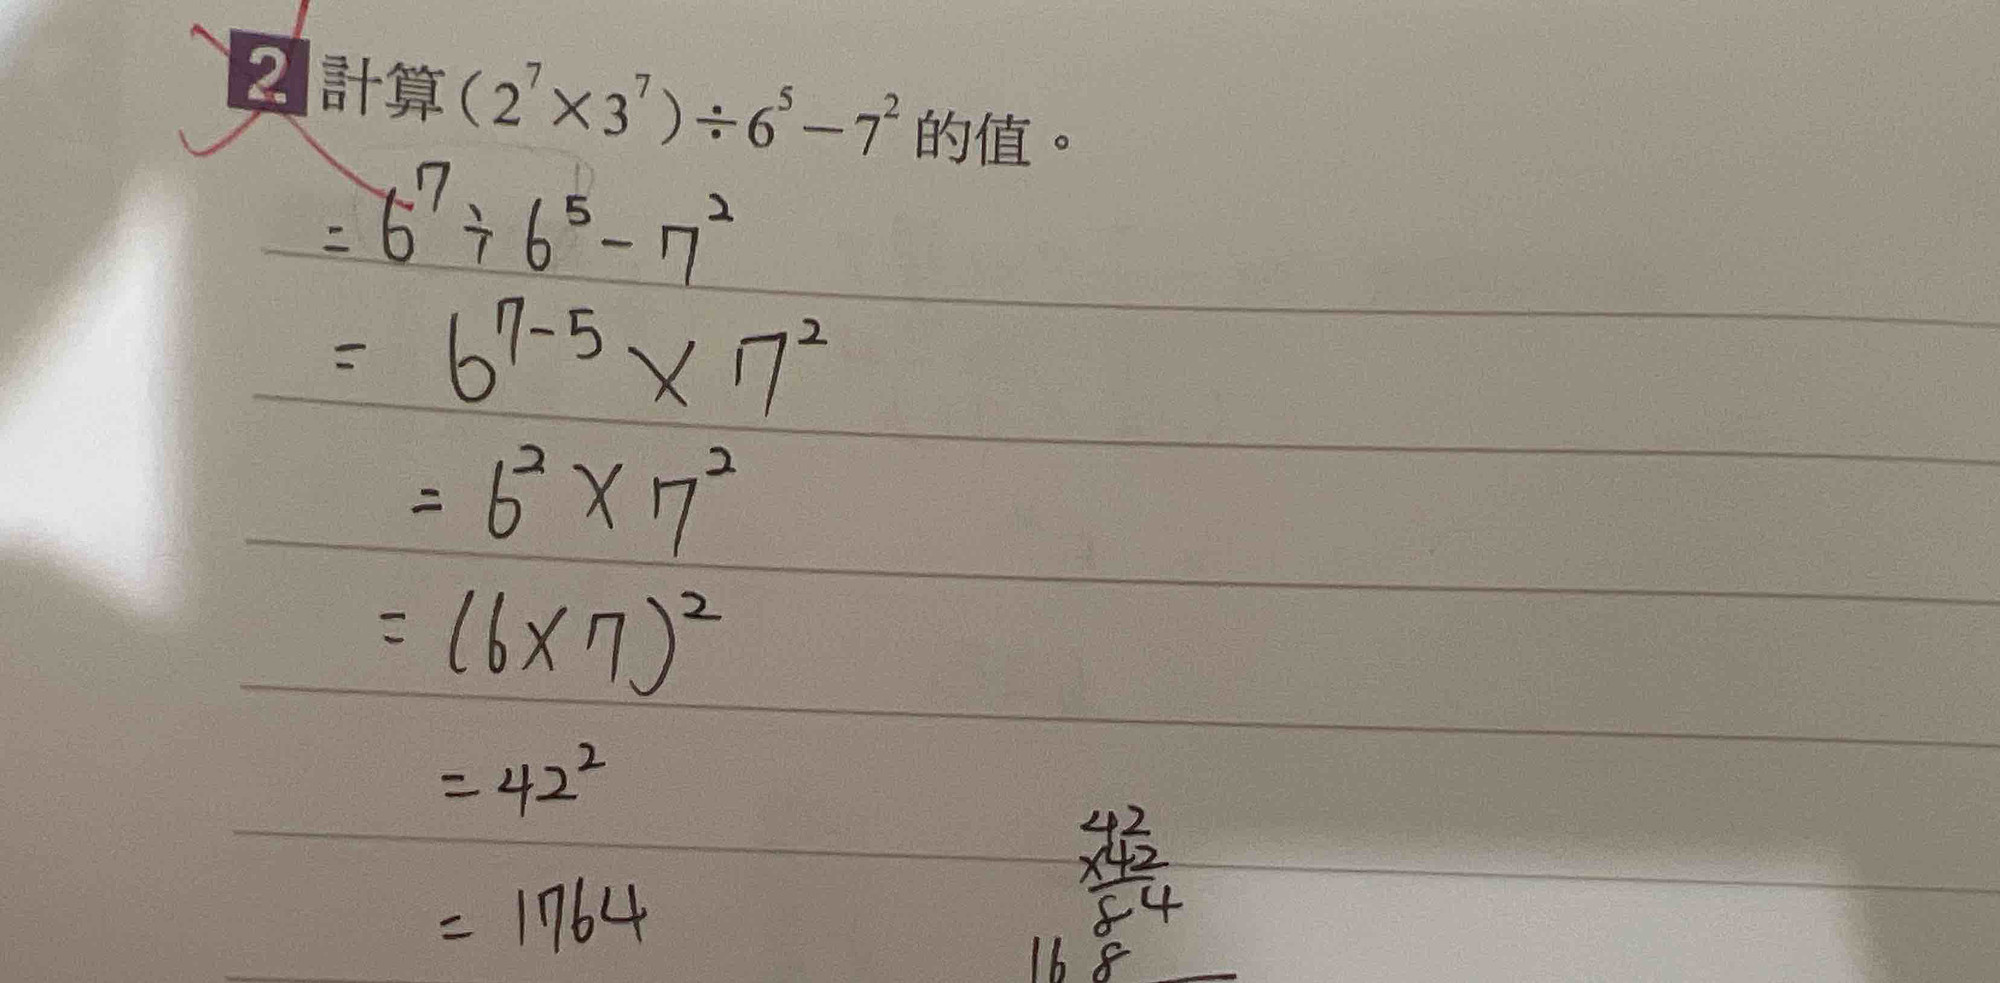 2 計算(2⁷×3⁷)÷6⁵−7²的值。
= 6⁷ ÷ 6⁵ − 7²
= 6⁷⁻⁵ × 7²
= 6² × 7²
= (6×7)²
= 42²
= 1764
42
×42
84
168